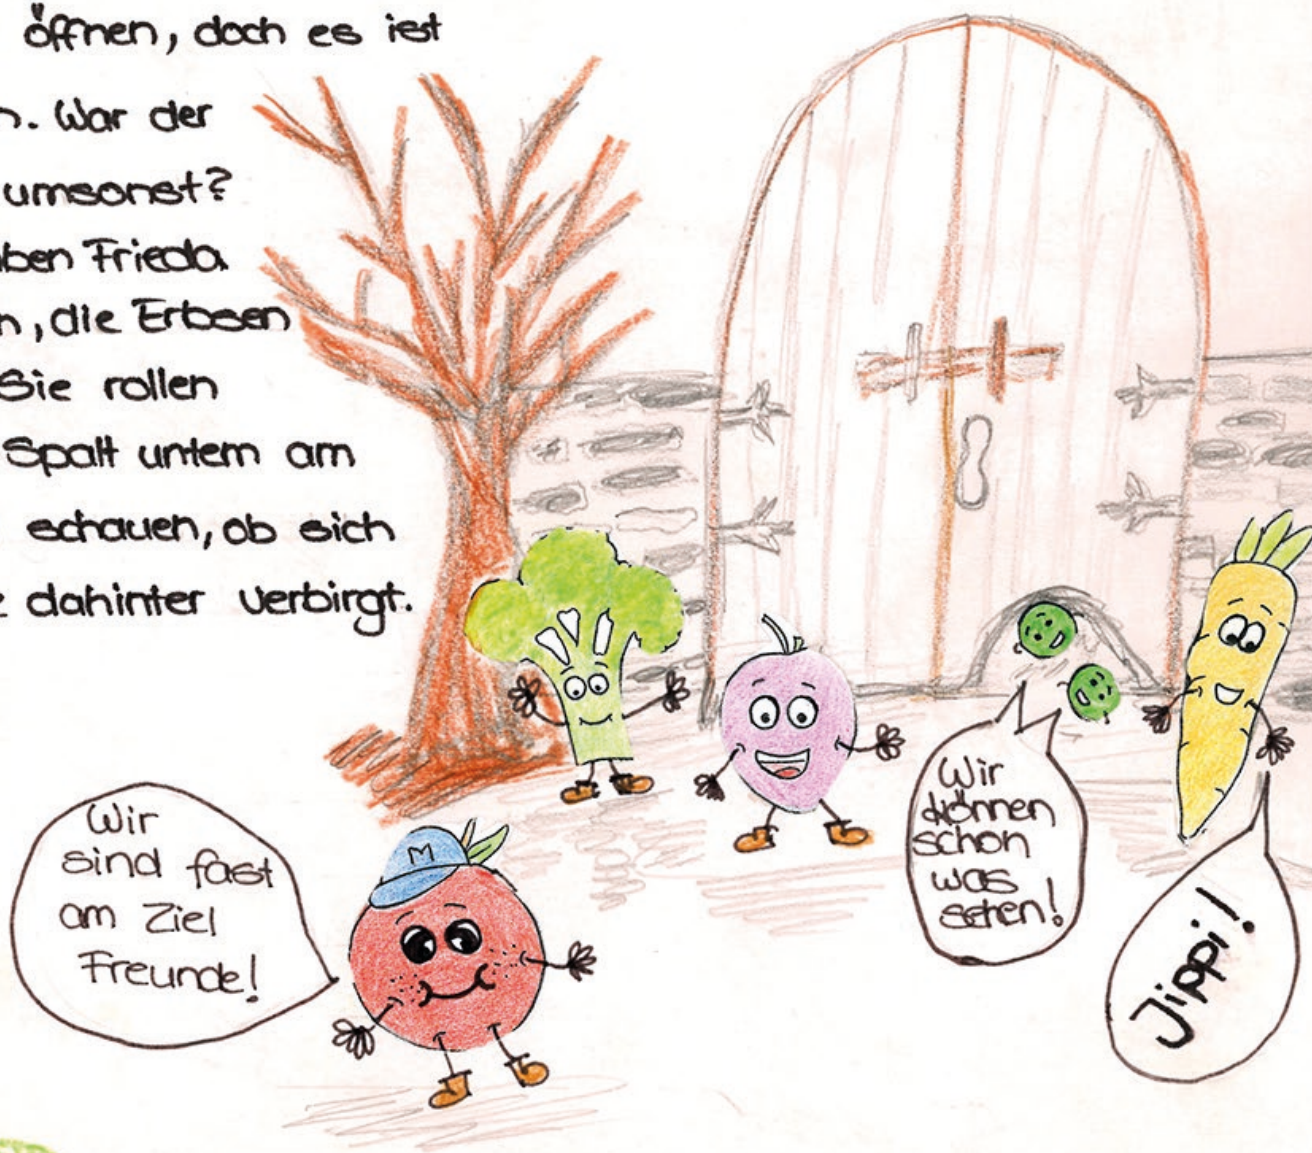 öffnen, doch es ist
. War der
umsonst?
ben Frieda
n, die Erbsen
Sie rollen
Spalt untem am
schauen, ob sich
z dahinter verbirgt.
Wir
sind fast
am Ziel
Freunde!
M
Wir
können
schon
was
sehen!
Jippi!